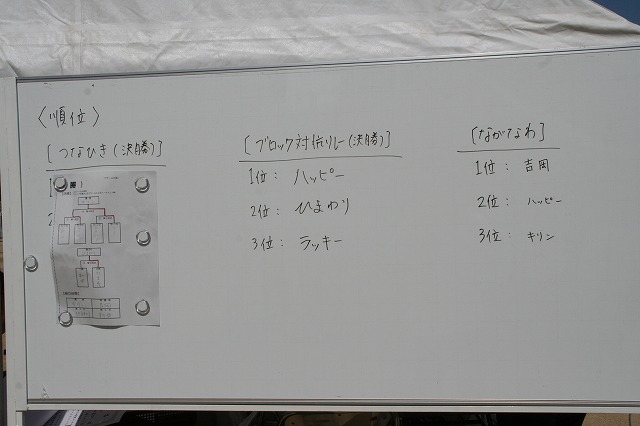 〈順位〉
[つなひき(決勝)]
1
2
[ブロック対抗リレー(決勝)]
1位: ハッピー
2位: ひまわり
3位: ラッキー
[ながなわ]
1位: 吉岡
2位: ハッピー
3位: キリン